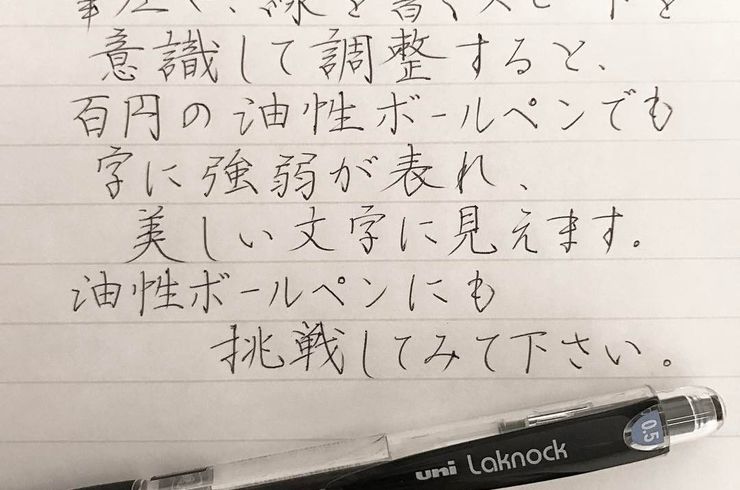 線を書くスピードを
意識して調整すると、
百円の油性ボールペンでも
字に強弱が表れ、
美しい文字に見えます。
油性ボールペンにも
挑戦してみて下さい。
0.5
uni Laknock